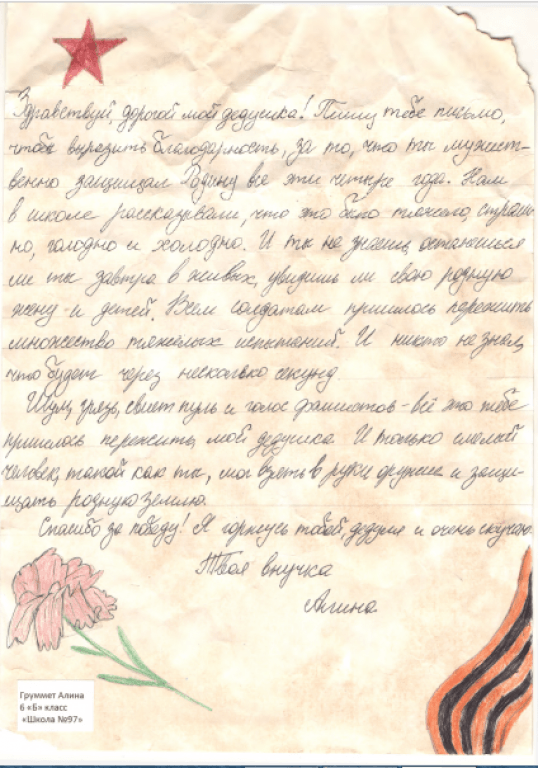 Здравствуй, дорогой мой дедушка! Пишу тебе письмо,
чтобы выразить благодарность, за то, что ты мужест-
венно защищал Родину все эти четыре года. Нам
в школе рассказывали, что это было тяжело, страш-
но, голодно и холодно. И ты не знаешь, останешься
ли ты завтра в живых, увидишь ли свою родную
жену и детей. Всем солдатам пришлось пережить
множество тяжёлых испытаний. И никто не знал,
что будет через несколько секунд.
Шум, грязь, свист пуль и голос фашистов - всё это тебе
пришлось пережить, мой дедушка. И только смелый
человек, такой как ты, мог взять в руки оружие и защи-
щать родную землю.
Спасибо за победу! Я горжусь тобой, дедуля и очень скучаю.
Твоя внучка
Алина
Груммет Алина
6 «Б» класс
«Школа №97»